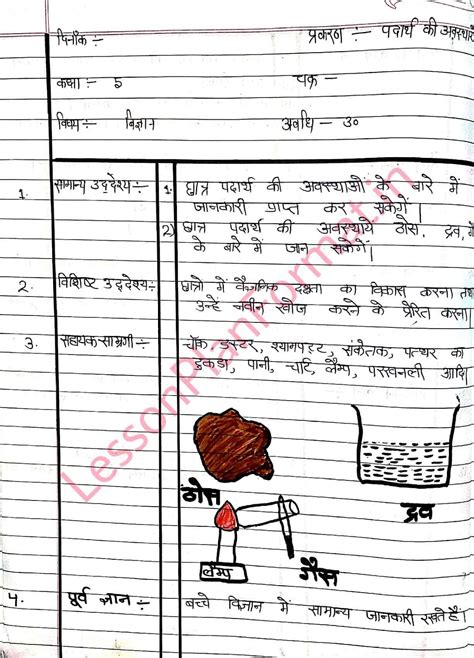 दिनांक :-
प्रकरण :- पदार्थ की अवस्थाएँ
कक्षा :- 5
चक्र -
विषय :- विज्ञान
अवधि - ३०
1. सामान्य उद्देश्य :- 1. छात्र पदार्थ की अवस्थाओं के बारे में
जानकारी प्राप्त कर सकेगें।
2) छात्र पदार्थ की अवस्थायें ठोस, द्रव,
के बारे में जान सकेगें।
2. विशिष्ट उद्देश्य :- छात्रो में वैज्ञानिक दक्षता का विकास करना तथा
उन्हें नवीन खोज करने के प्रेरित करना।
3. सहायक सामग्री :- चॉक, डस्टर, श्यामपट्ट, संकेतक, पत्थर का
टुकडा, पानी, चार्ट, लैम्प, परखनली आदि।
ठोस
द्रव
लैम्प
गैस
4. पूर्व ज्ञान :- बच्चे विज्ञान में सामान्य जानकारी रखते हैं।
LessonPlanFormat.in